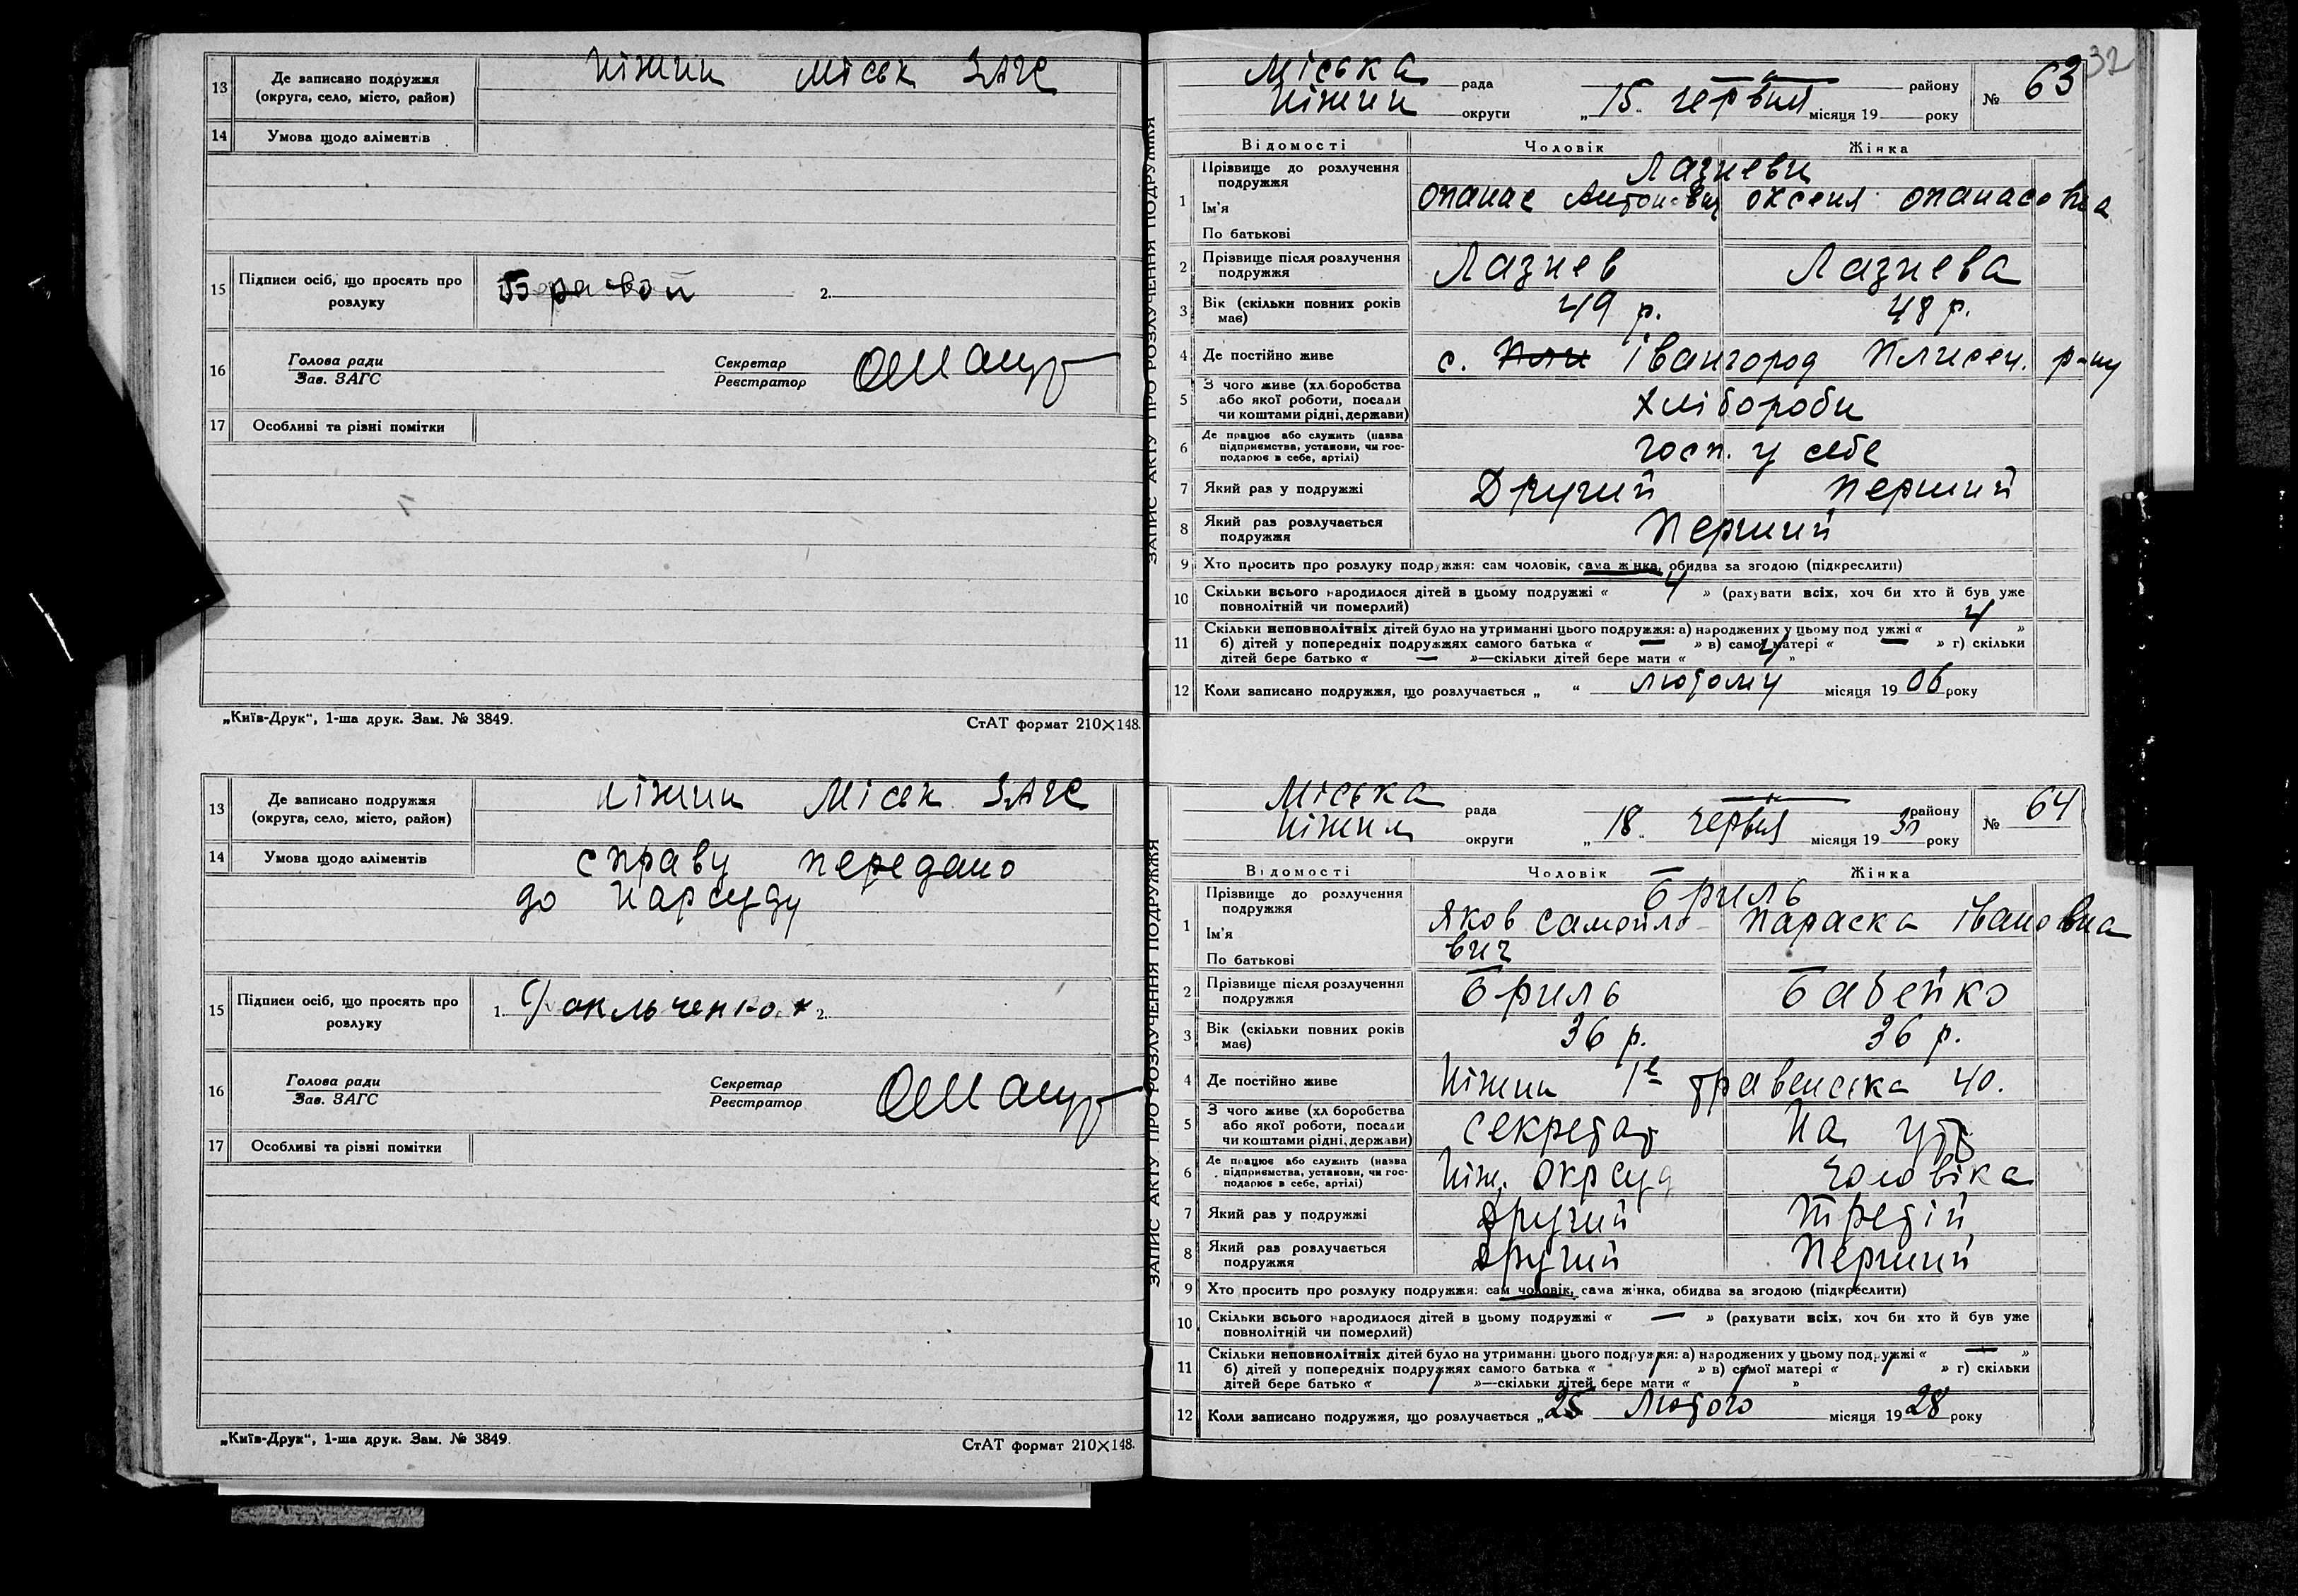 13 Де записано подружжя (округа, село, місто, район) Ніжин Міськ ЗАГС
14 Умова щодо аліментів
15 Підписи осіб, що просять про розлуку 2.
16 Голова ради Зав. ЗАГС Секретар Реєстратор
17 Особливі та різні помітки
„Київ-Друк“, 1-ша друк. Зам. № 3849. СтАТ формат 210×148.
13 Де записано подружжя (округа, село, місто, район) Ніжин Міськ ЗАГС
14 Умова щодо аліментів справу передано
до Нарсуду
15 Підписи осіб, що просять про розлуку 1. 2.
16 Голова ради Зав. ЗАГС Секретар Реєстратор
17 Особливі та різні помітки
„Київ-Друк“, 1-ша друк. Зам. № 3849. СтАТ формат 210×148.
ЗАПИС АКТУ ПРО РОЗЛУЧЕННЯ ПОДРУЖЖЯ
32
Міська рада — району № 63
Ніжин округи „15“ червня місяця 19 року
Відомості Чоловік Жінка
1 Прізвище до розлучення подружжя Лазневи
Ім'я Опанас Антонович Оксеня Опанасовна
По батькові
2 Прізвище після розлучення подружжя Лазнев Лазнева
3 Вік (скільки повних років має) 49 р. 48 р.
4 Де постійно живе с. Пли Івангород Плисец. р-ну
5 З чого живе (хліборобства або якої роботи, посади чи коштами рідні, держави) Хлібороби
6 Де працює або служить (назва підприємства, установи, чи господарює в себе, артілі) госп. у себе
7 Який раз у подружжі Другий Перший
8 Який раз розлучається подружжя Перший
9 Хто просить про розлуку подружжя: сам чоловік, сама жінка, обидва за згодою (підкреслити)
10 Скільки всього народилося дітей в цьому подружжі « 4 » (рахувати всіх, хоч би хто й був уже
повнолітній чи померлий)
11 Скільки неповнолітніх дітей було на утриманні цього подружжя: а) народжених у цьому подружжі « 4 »
б) дітей у попередніх подружжях самого батька « — » в) самої матері « — » г) скільки
дітей бере батько « — »—скільки дітей бере мати « 4 »
12 Коли записано подружжя, що розлучається „ “ лютому місяця 1906 року
ЗАПИС АКТУ ПРО РОЗЛУЧЕННЯ ПОДРУЖЖЯ
Міська рада — району № 64
Ніжин округи „18“ червня місяця 1930 року
Відомості Чоловік Жінка
1 Прізвище до розлучення подружжя Бриль
Ім'я Яков Самойло- Параска Івановна
По батькові вич
2 Прізвище після розлучення подружжя Бриль Бабейко
3 Вік (скільки повних років має) 36 р. 36 р.
4 Де постійно живе Ніжин 1е травенська 40.
5 З чого живе (хліборобства або якої роботи, посади чи коштами рідні, держави) секретар На утр.
6 Де працює або служить (назва підприємства, установи, чи господарює в себе, артілі) Ніж. Окрсуд чоловіка
7 Який раз у подружжі другий третій
8 Який раз розлучається подружжя другий Перший
9 Хто просить про розлуку подружжя: сам чоловік, сама жінка, обидва за згодою (підкреслити)
10 Скільки всього народилося дітей в цьому подружжі « — » (рахувати всіх, хоч би хто й був уже
повнолітній чи померлий)
11 Скільки неповнолітніх дітей було на утриманні цього подружжя: а) народжених у цьому подружжі « — »
б) дітей у попередніх подружжях самого батька « » в) самої матері « » г) скільки
дітей бере батько « »—скільки дітей бере мати « »
12 Коли записано подружжя, що розлучається „25 Лютого місяця 1928 року